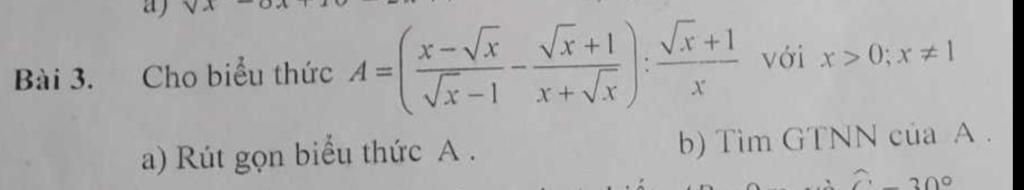 a)
Bài 3. Cho biểu thức A = ( (x − √x)/(√x − 1) − (√x + 1)/(x + √x) ) : (√x + 1)/x với x > 0; x ≠ 1
a) Rút gọn biểu thức A . b) Tìm GTNN của A .
30°